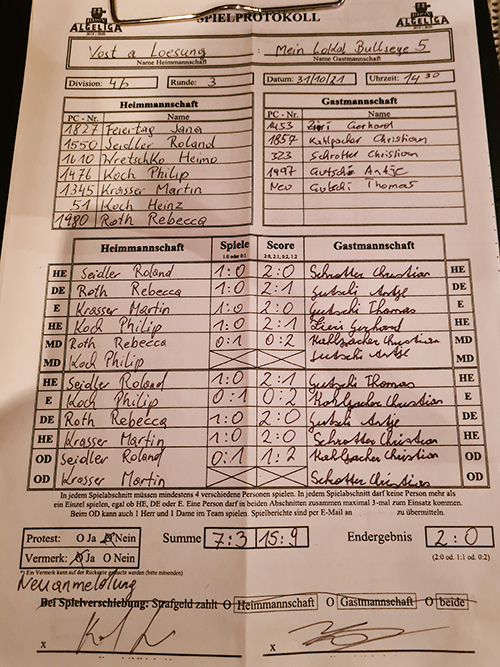 ALGELIGA SPIELPROTOKOLL ALGELIGA
Vost a Loesung : Mein Lokal Bullseye 5
Name Heimmannschaft Name Gastmannschaft
Division: 4b Runde: 3 Datum: 31/10/21 Uhrzeit: 14 30
Heimmannschaft Gastmannschaft
PC - Nr. Name PC - Nr. Name
1827 Feiertag Jana 1453 Gerhard
1550 Seidler Roland 1857 Kahlpacher Christian
1610 Wretschko Heimo 323 Schrotter Christian
1476 Koch Philip 1997 Gutschi Antje
1345 Krasser Martin Neu Gutschi Thomas
51 Koch Heinz
1980 Roth Rebecca
Heimmannschaft Spiele Score Gastmannschaft
1:0 oder 0:1 2:0, 2:1, 0:2, 1:2
HE Seidler Roland 1:0 2:0 Schrotter Christian HE
DE Roth Rebecca 1:0 2:1 Gutschi Antje DE
E Krasser Martin 1:0 2:0 Gutschi Thomas E
HE Koch Philip 1:0 2:1 Gerhard HE
MD Roth Rebecca 0:1 0:2 Kahlpacher Christian MD
MD Koch Philip Gutschi Antje MD
HE Seidler Roland 1:0 2:1 Gutschi Thomas HE
E Koch Philip 0:1 0:2 Kahlpacher Christian E
DE Roth Rebecca 1:0 2:0 Gutschi Antje DE
HE Krasser Martin 1:0 2:0 Schrotter Christian HE
OD Seidler Roland 0:1 1:2 Kahlpacher Christian OD
OD Krasser Martin Schrotter Christian OD
In jedem Spielabschnitt müssen mindestens 4 verschiedene Personen spielen. In jedem Spielabschnitt darf keine Person mehr als
ein Einzel spielen, egal ob HE, DE oder E. Eine Person darf in beiden Abschnitten zusammen maximal 3-mal zum Einsatz kommen.
Beim OD kann auch 1 Herr und 1 Dame im Team spielen. Spielberichte sind per E-Mail an zu übermitteln.
Protest: O Ja O Nein Summe 7:3 15:9 Endergebnis 2:0
Vermerk: O Ja O Nein (2:0 od. 1:1 od. 0:2)
*) Ein Vermerk kann auf der Rückseite gemacht werden (bitte mitsenden)
Neuanmeldung
Bei Spielverschiebung: Strafgeld zahlt O Heimmannschaft O Gastmannschaft O beide
x x